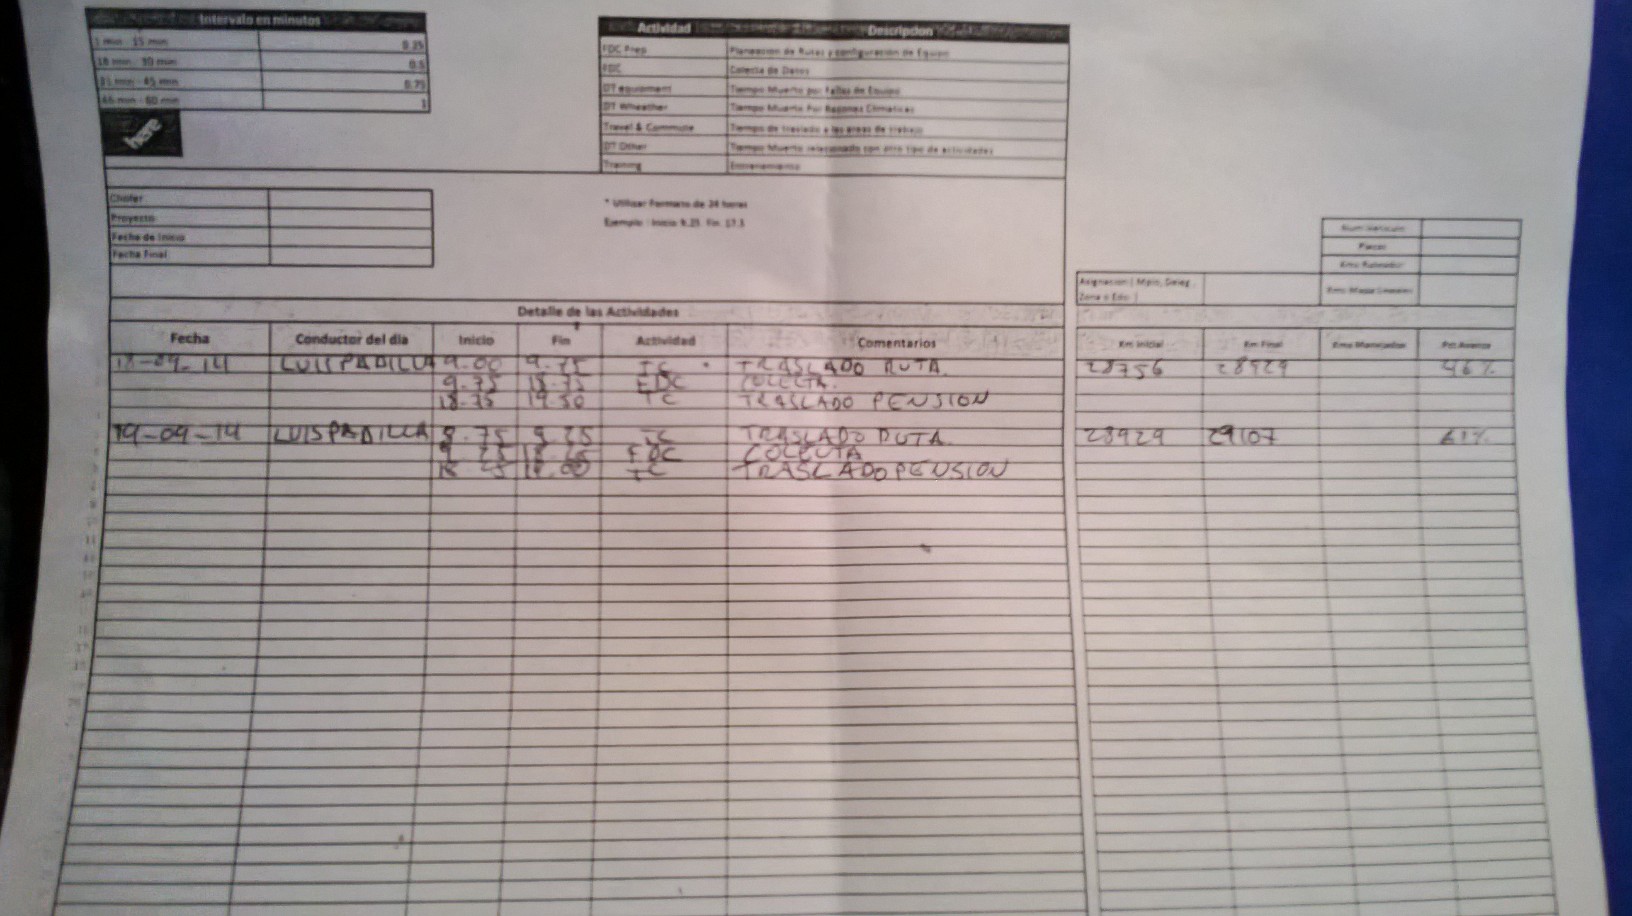 Intervalo en minutos
1 min - 15 min 0.25
16 min - 30 min 0.5
31 min - 45 min 0.75
46 min - 60 min 1
here
Actividad Descripcion
FDC Prep Planeacion de Rutas y configuración de Equipo
FDC Colecta de Datos
DT equipment Tiempo Muerto por Fallas de Equipo
DT Wheather Tiempo Muerto Por Razones Climaticas
Travel & Commute Tiempo de traslado a las areas de trabajo
DT Other Tiempo Muerto relacionado con otro tipo de actividades
Training Entrenamiento
Chofer
Proyecto
Fecha de Inicio
Fecha Final
* Utilizar Formato de 24 horas
Ejemplo : Inicio 9.25 Fin 17.5
Placas
Asignacion ( Mpio, Deleg,
Zona o Edo )
Detalle de las Actividades
Fecha Conductor del dia Inicio Fin Actividad Comentarios Km Inicial Km Final Kms Manejados Pct Avance
18-09-14 LUIS PADILLA 9.00 9.75 TC TRASLADO RUTA. 28756 28929 46%
9.75 18.75 FDC COLECTA.
18.75 19.50 TC TRASLADO PENSION
19-09-14 LUIS PADILLA 8.75 9.25 TC TRASLADO RUTA. 28929 29107 61%
FDC COLECTA
TC TRASLADO PENSION